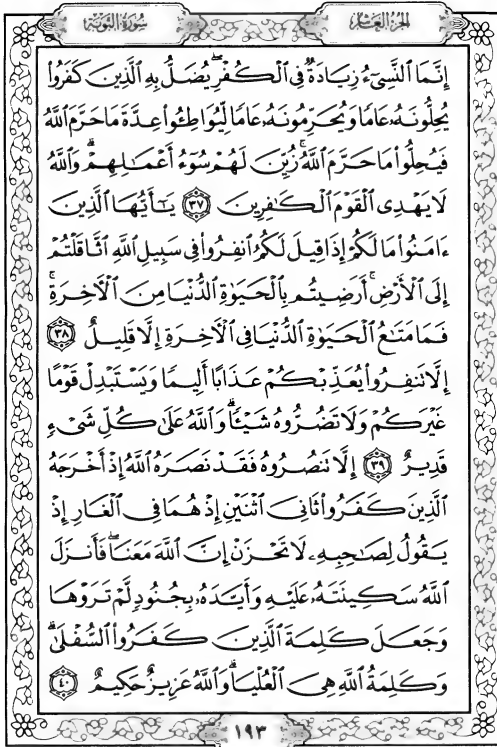 الجزء العاشر سورة التوبة
إِنَّمَا ٱلنَّسِىٓءُ زِيَادَةٌ فِى ٱلْكُفْرِ ۖ يُضَلُّ بِهِ ٱلَّذِينَ كَفَرُوا۟
يُحِلُّونَهُۥ عَامًا وَيُحَرِّمُونَهُۥ عَامًا لِّيُوَاطِـُٔوا۟ عِدَّةَ مَا حَرَّمَ ٱللَّهُ
فَيُحِلُّوا۟ مَا حَرَّمَ ٱللَّهُ ۚ زُيِّنَ لَهُمْ سُوٓءُ أَعْمَـٰلِهِمْ ۗ وَٱللَّهُ
لَا يَهْدِى ٱلْقَوْمَ ٱلْكَـٰفِرِينَ ٣٧ يَـٰٓأَيُّهَا ٱلَّذِينَ
ءَامَنُوا۟ مَا لَكُمْ إِذَا قِيلَ لَكُمُ ٱنفِرُوا۟ فِى سَبِيلِ ٱللَّهِ ٱثَّاقَلْتُمْ
إِلَى ٱلْأَرْضِ ۚ أَرَضِيتُم بِٱلْحَيَوٰةِ ٱلدُّنْيَا مِنَ ٱلْـَٔاخِرَةِ ۚ
فَمَا مَتَـٰعُ ٱلْحَيَوٰةِ ٱلدُّنْيَا فِى ٱلْـَٔاخِرَةِ إِلَّا قَلِيلٌ ٣٨
إِلَّا تَنفِرُوا۟ يُعَذِّبْكُمْ عَذَابًا أَلِيمًا وَيَسْتَبْدِلْ قَوْمًا
غَيْرَكُمْ وَلَا تَضُرُّوهُ شَيْـًٔا ۗ وَٱللَّهُ عَلَىٰ كُلِّ شَىْءٍ
قَدِيرٌ ٣٩ إِلَّا تَنصُرُوهُ فَقَدْ نَصَرَهُ ٱللَّهُ إِذْ أَخْرَجَهُ
ٱلَّذِينَ كَفَرُوا۟ ثَانِىَ ٱثْنَيْنِ إِذْ هُمَا فِى ٱلْغَارِ إِذْ
يَقُولُ لِصَـٰحِبِهِۦ لَا تَحْزَنْ إِنَّ ٱللَّهَ مَعَنَا ۖ فَأَنزَلَ
ٱللَّهُ سَكِينَتَهُۥ عَلَيْهِ وَأَيَّدَهُۥ بِجُنُودٍ لَّمْ تَرَوْهَا
وَجَعَلَ كَلِمَةَ ٱلَّذِينَ كَفَرُوا۟ ٱلسُّفْلَىٰ ۗ
وَكَلِمَةُ ٱللَّهِ هِىَ ٱلْعُلْيَا ۗ وَٱللَّهُ عَزِيزٌ حَكِيمٌ ٤٠
١٩٣